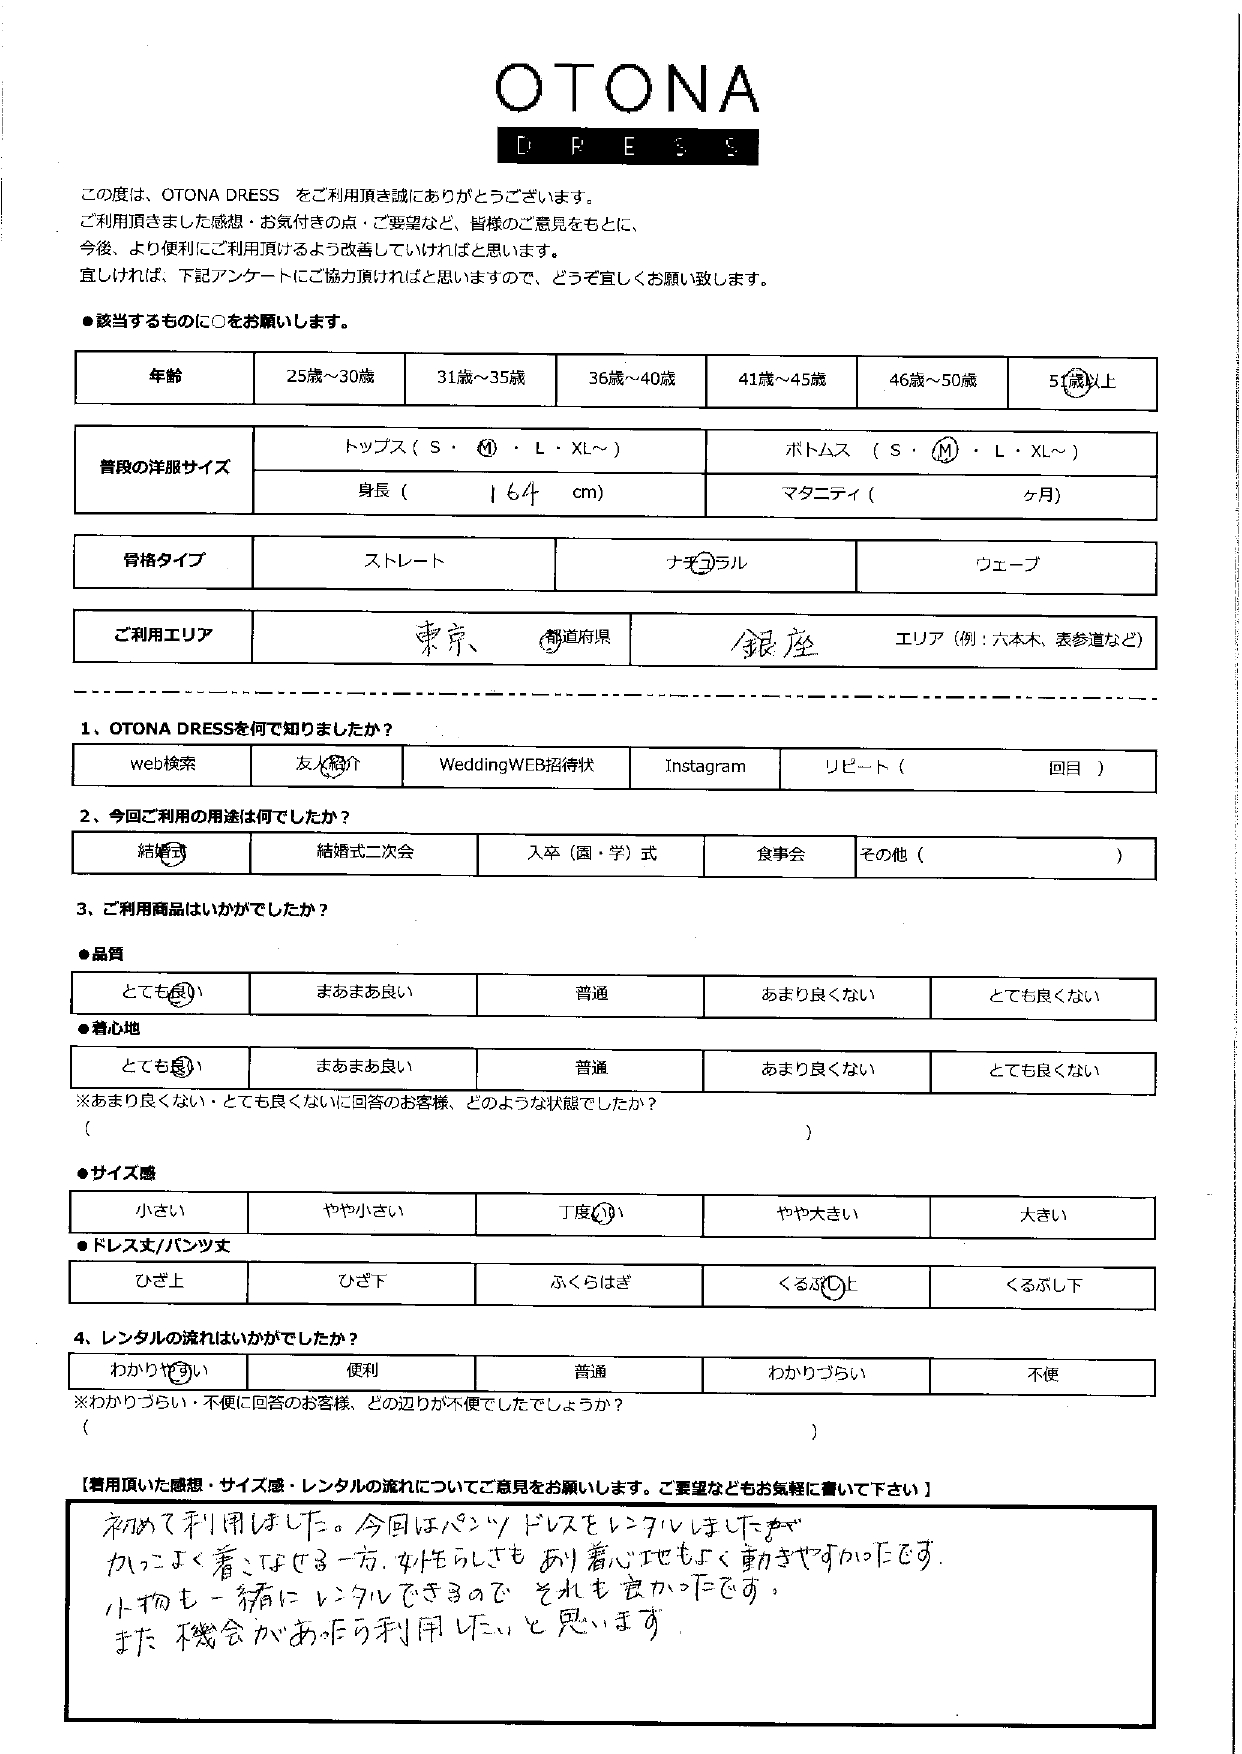 OTONA
DRESS
この度は、OTONA DRESS　をご利用頂き誠にありがとうございます。
ご利用頂きました感想・お気付きの点・ご要望など、皆様のご意見をもとに、
今後、より便利にご利用頂けるよう改善していければと思います。
宜しければ、下記アンケートにご協力頂ければと思いますので、どうぞ宜しくお願い致します。
●該当するものに○をお願いします。
年齢 25歳～30歳 31歳～35歳 36歳～40歳 41歳～45歳 46歳～50歳 51歳以上
普段の洋服サイズ トップス ( S ・ M ・ L ・ XL～ ) ボトムス ( S ・ M ・ L ・ XL～ )
身長 ( 164 cm) マタニティ ( ヶ月)
骨格タイプ ストレート ナチュラル ウェーブ
ご利用エリア 東京 都道府県 銀座 エリア（例：六本木、表参道など）
1、OTONA DRESSを何で知りましたか？
web検索 友人紹介 WeddingWEB招待状 Instagram リピート ( 回目 )
2、今回ご利用の用途は何でしたか？
結婚式 結婚式二次会 入卒（園・学）式 食事会 その他 ( )
3、ご利用商品はいかがでしたか？
●品質
とても良い まあまあ良い 普通 あまり良くない とても良くない
●着心地
とても良い まあまあ良い 普通 あまり良くない とても良くない
※あまり良くない・とても良くないに回答のお客様、どのような状態でしたか？
( )
●サイズ感
小さい やや小さい 丁度いい やや大きい 大きい
●ドレス丈/パンツ丈
ひざ上 ひざ下 ふくらはぎ くるぶし上 くるぶし下
4、レンタルの流れはいかがでしたか？
わかりやすい 便利 普通 わかりづらい 不便
※わかりづらい・不便に回答のお客様、どの辺りが不便でしたでしょうか？
( )
【着用頂いた感想・サイズ感・レンタルの流れについてご意見をお願いします。ご要望などもお気軽に書いて下さい】
初めて利用しました。今回はパンツドレスをレンタルしましたが
かっこよく着こなせる一方、女性らしさもあり着心地もよく動きやすかったです.
小物も一緒にレンタルできるのでそれも良かったです。
また機会があったら利用したいと思います.